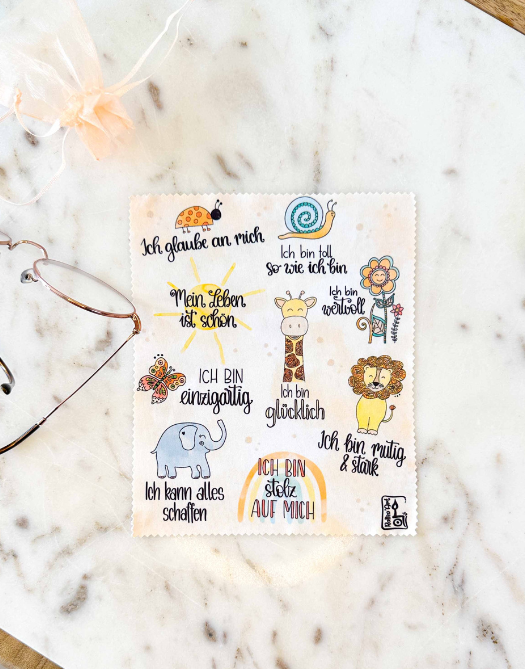 Ich glaube an mich
Ich bin toll
so wie ich bin
Mein Leben
ist schön
Ich bin
wertvoll
ICH BIN
einzigartig
Ich bin
glücklich
Ich bin mutig
& stark
Ich kann alles
schaffen
ICH BIN
stolz
AUF MICH